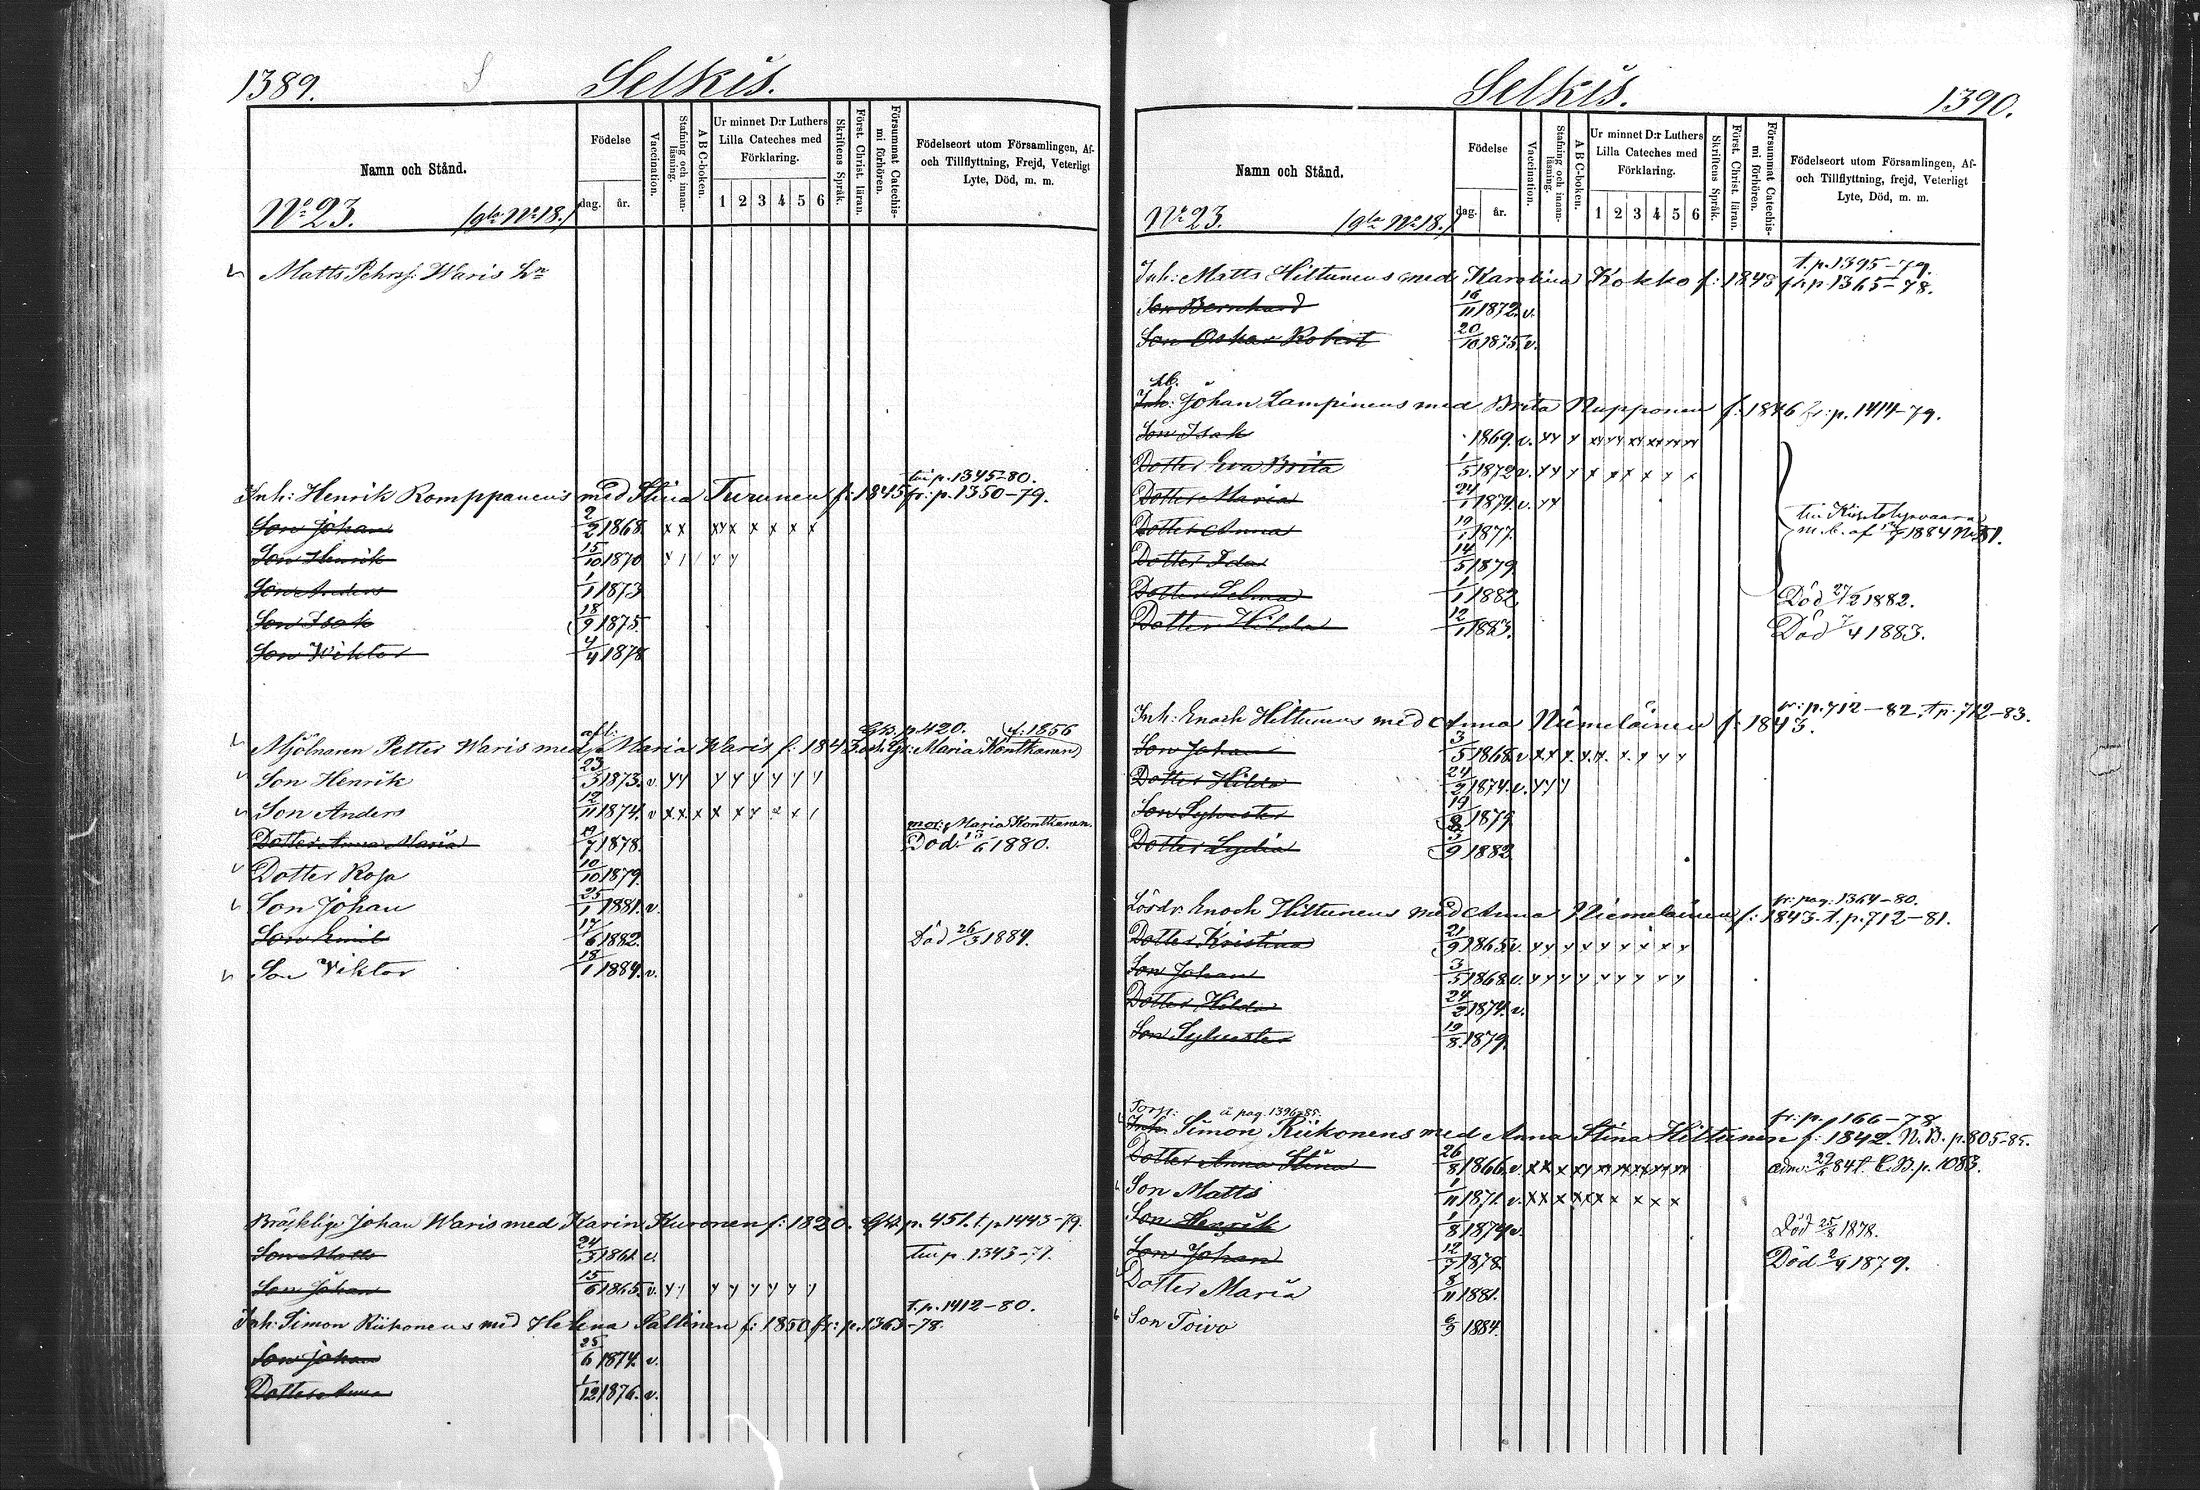 1389.
Selkis.
Namn och Stånd.
Födelse
dag. år.
Vaccination.
Stafning och innanläsning.
A B C-boken.
Ur minnet D:r Luthers Lilla Cateches med Förklaring.
1 2 3 4 5 6
Skriftens Språk.
Först. Christ. läran.
Försummat Catechismi förhören.
Födelseort utom Församlingen, Af- och Tillflyttning, Frejd, Veterligt Lyte, Död, m. m.
No 23. (gla No 18.)
Matts Pehrss: Waris
till p. 1345-80.
Inh: Henrik Romppanens med Stina Turunen f: 1845 fr: p. 1350-79.
Son Johan 2/2 1868. x x x x x x x x x
Son Henrik 15/10 1870
Son Anders 1/1 1873
Son Isak 18/9 1875.
Son Wiktor 4/4 1878
aft: p. 420. (f. 1856
Mjölnaren Petter Waris med Maria Waris f: 1843. och Gr: Maria Kontkanen)
Son Henrik 23/3 1873. v
Son Anders 12/11 1874. v
mor: Maria Kontkanen.
Dotter Anna Maria 19/7 1878. Död 13/6 1880.
Dotter Rosa 10/10 1879.
Son Johan 25/1 1881. v.
Son Emil 17/6 1882. Död 26/3 1884.
Son Viktor 18/1 1884. v.
Bräcklige Johan Waris med Karin Kuronen f: 1820. p. 451. t. p. 1443-79.
Son Matts 24/3 1861. v. till p. 1343-77.
Son Johan 15/6 1865. v.
t. p. 1412-80.
Inh: Simon Riikonens med Helena Sallinen f: 1850 fr: p. 1363-78.
Son Johan 25/6 1874. v.
Dotter Anna 1/12 1876. v.
Selkis.
1390.
Namn och Stånd.
Födelse
dag. år.
Vaccination.
Stafning och innanläsning.
A B C-boken.
Ur minnet D:r Luthers Lilla Cateches med Förklaring.
1 2 3 4 5 6
Skriftens Språk.
Först. Christ. läran.
Försummat Catechismi förhören.
Födelseort utom Församlingen, Af- och Tillflyttning, frejd, Veterligt Lyte, Död, m. m.
No 23. (gla No 18.)
t. p. 1395-79.
Inh: Matts Hiltunens med Karolina Kokko f: 1845 fr. p. 1365-78.
Son Bernhard 16/11 1872. v.
Son Oskar Robert 20/10 1875. v.
Inh: Johan Lampinens med Brita Nupponen f: 1846 fr: p. 1414-79.
Son Isak 1869. v.
Dotter Eva Brita 1/5 1872 v.
Dotter Maria 24/1 1874. v.
Dotter Anna 19/1 1877.
till
m. b. af 1884 No 81.
Dotter Ida 14/5 1879
Dotter Selma 1/1 1882 Död 27/2 1882.
Dotter Hilda 12/1 1883. Död 7/4 1883.
Inh: Enoch Hiltunens med Anna Niemeläinen f: 1843. fr: p. 712-82. t. p. 712-83.
Son Johan 3/5 1868. v
Dotter Hilda 24/2 1874. v.
Son Sylvester 19/8 1879
Dotter Lydia 3/9 1882
fr: pag. 1364-80.
Lösdr. Enoch Hiltunens med Anna Niemeläinen f: 1843. t. p. 712-81.
Dotter Kristina 21/9 1865. v.
Son Johan 3/5 1868 v.
Dotter Hilda 24/2 1874. v.
Son Sylvester 19/8 1879.
Torp: à pag. 1396-85. fr: p. 166-78
Inh. Simon Riikonens med Anna Stina Hiltunen f: 1842. N. B. p. 805-85.
Dotter Anna Stina 26/8 1866. v. C. B. p. 1083.
Son Matts 1/11 1871. v.
Son Henrik 1/8 1874 v. Död 25/8 1878.
Son Johan 12/7 1878. Död 2/4 1879.
Dotter Maria 8/11 1881.
Son Toivo 6/9 1884.